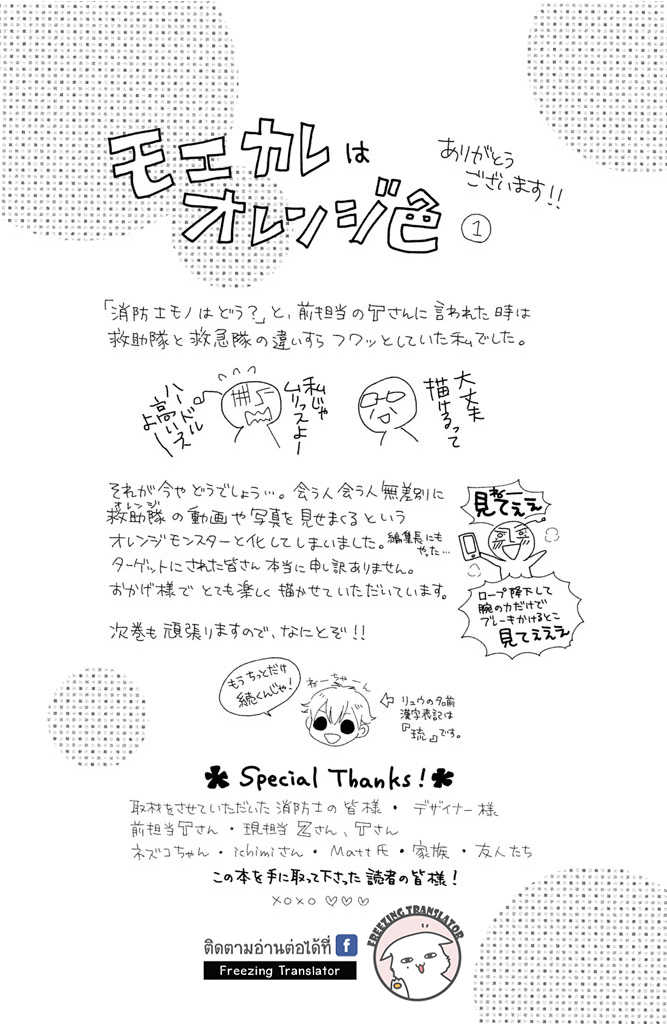 モエカレは
オレンジ色 ①
ありがとう
ございます!!
「消防士モノはどう?」と、前担当のTさんに言われた時は
救助隊と救急隊の違いすらフワッとしていた私でした。
大丈夫
描けるって
私じゃ
ムリっスよー
ハードル
高いっス
よー
それが今やどうでしょう…。会う人会う人無差別に
オレンジ
救助隊の動画や写真を見せまくるという
オレンジモンスターと化してしまいました。編集長にも
やった…
ターゲットにされた皆さん本当に申し訳ありません。
おかげ様でとても楽しく描かせていただいています。
次巻も頑張りますので、なにとぞ!!
ねー
見てぇぇ
ロープ降下して
腕の力だけで
ブレーキかけるとこ
見てぇぇぇ
もうちっとだけ
続くんじゃ!
ねーちゃーん
リュウの名前
漢字表記は
『琉』です。
Special Thanks!
取材をさせていただいた消防士の皆様・デザイナー様
前担当Tさん・現担当Zさん、Tさん
ネズコちゃん・ichimiさん・Matt氏・家族・友人たち
この本を手に取って下さった読者の皆様!
xoxo ♡♡♡
ติดตามอ่านต่อได้ที่ f
Freezing Translator
FREEZING TRANSLATOR